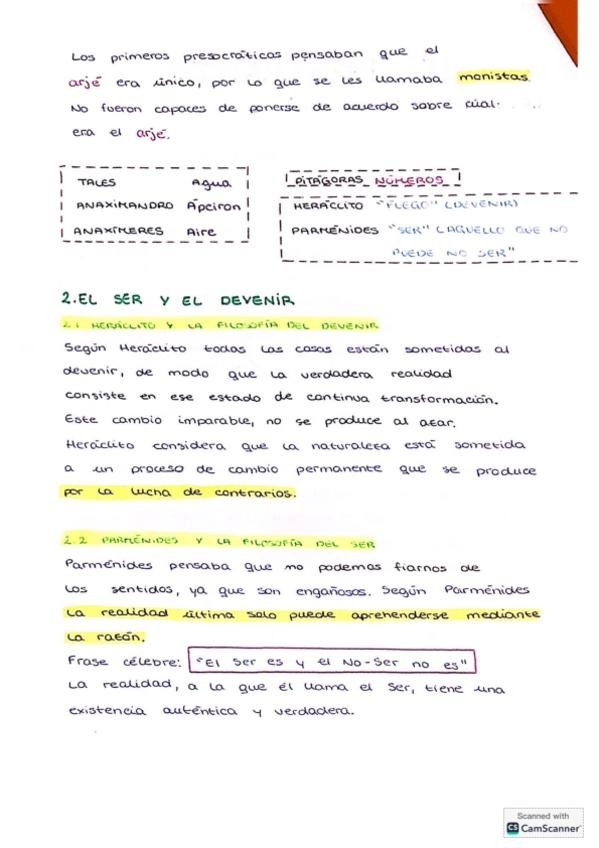 Los primeros presocráticos pensaban que el
arjé era único, por lo que se les llamaba monistas
No fueron capaces de ponerse de acuerdo sobre cúal
era el arjé.
TALES Agua
ANAXIMANDRO Ápeiron
ANAXÍMERES Aire
PITÁGORAS NÚMEROS
HERÁCLITO "FUEGO" (DEVENIR)
PARMÉNIDES "SER" (AQUELLO QUE NO
PUEDE NO SER"
2. EL SER Y EL DEVENIR
2.1 HERÁCLITO Y LA FILOSOFÍA DEL DEVENIR
Según Heráclito todas las cosas están sometidas al
devenir, de modo que la verdadera realidad
consiste en ese estado de continua transformación.
Este cambio imparable, no se produce al azar.
Heráclito considera que la naturaleza está sometida
a un proceso de cambio permanente que se produce
por la lucha de contrarios.
2.2 PARMÉNIDES Y LA FILOSOFÍA DEL SER
Parménides pensaba que no podemos fiarnos de
los sentidos, ya que son engañosos. Según Parménides
la realidad última solo puede aprehenderse mediante
la razón.
Frase célebre: "El Ser es y el No-Ser no es"
La realidad, a la que él llama el Ser, tiene una
existencia auténtica y verdadera.
Scanned with
CS CamScanner